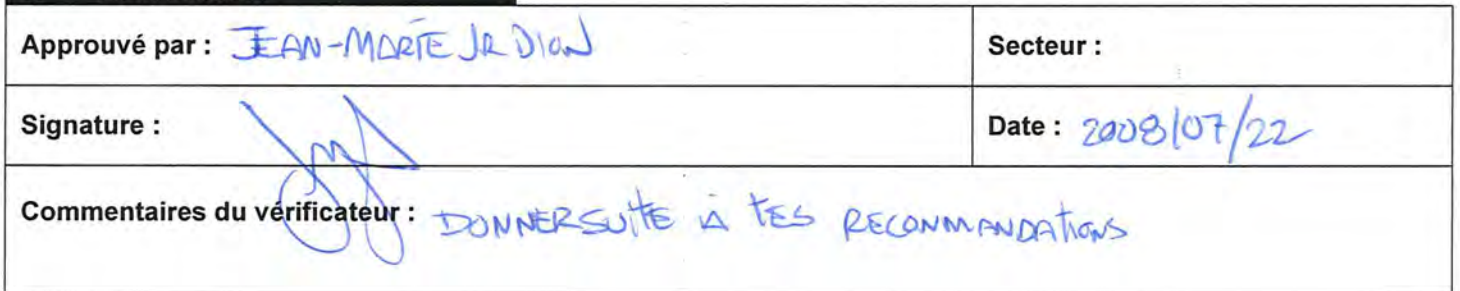 Approuvé par : JEAN-MARIE JR DION
Secteur :
Signature :
Date : 2008/07/22
Commentaires du vérificateur : DONNER SUITE À TES RECONMANDATIONS